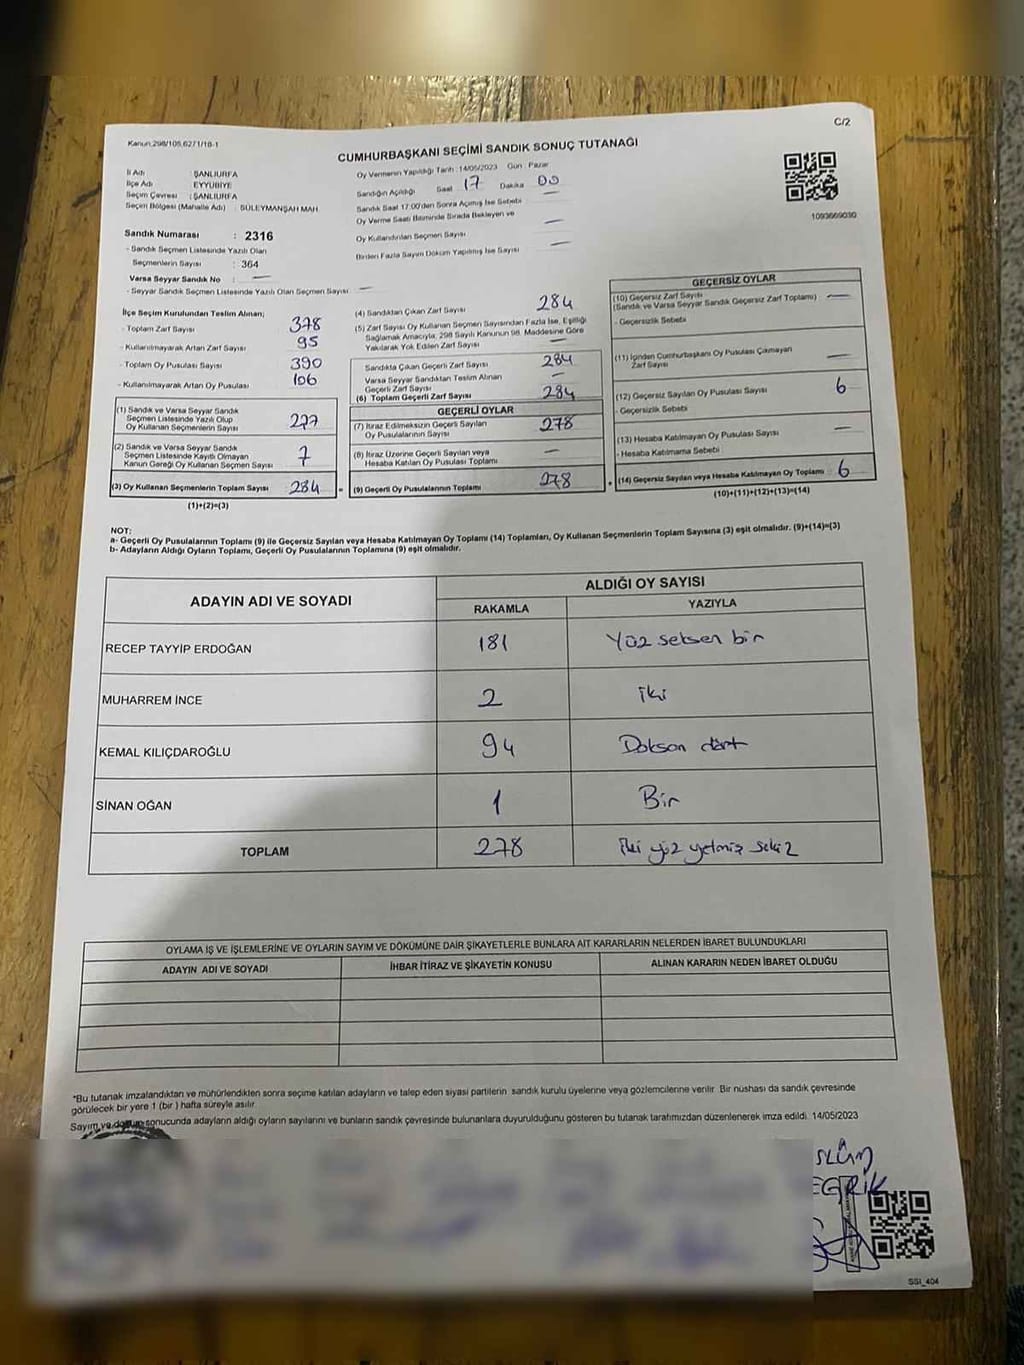 Kanun:298/105,6271/18-1
C/2
CUMHURBAŞKANI SEÇİMİ SANDIK SONUÇ TUTANAĞI
İli Adı : ŞANLIURFA
İlçe Adı : EYYÜBİYE
Seçim Çevresi : ŞANLIURFA
Seçim Bölgesi (Mahalle Adı) : SÜLEYMANŞAH MAH.
Sandık Numarası : 2316
- Sandık Seçmen Listesinde Yazılı Olan
Seçmenlerin Sayısı : 364
Varsa Seyyar Sandık No : —
- Seyyar Sandık Seçmen Listesinde Yazılı Olan Seçmen Sayısı : —
Oy Vermenin Yapıldığı Tarih :14/05/2023 Gün : Pazar
Sandığın Açıldığı Saat 17 Dakika 00
Sandık Saat 17:00'den Sonra Açılmış İse Sebebi —
Oy Verme Saati Bitiminde Sırada Bekleyen ve
Oy Kullandırılan Seçmen Sayısı —
Birden Fazla Sayım Döküm Yapılmış İse Sayısı —
1093669030
İlçe Seçim Kurulundan Teslim Alınan;
- Toplam Zarf Sayısı 378
- Kullanılmayarak Artan Zarf Sayısı 95
- Toplam Oy Pusulası Sayısı 390
- Kullanılmayarak Artan Oy Pusulası 106
(1) Sandık ve Varsa Seyyar Sandık
Seçmen Listesinde Yazılı Olup
Oy Kullanan Seçmenlerin Sayısı 277
(2) Sandık ve Varsa Seyyar Sandık
Seçmen Listesinde Kayıtlı Olmayan
Kanun Gereği Oy Kullanan Seçmen Sayısı 7
(3) Oy Kullanan Seçmenlerin Toplam Sayısı 284
(1)+(2)=(3)
(4) Sandıktan Çıkan Zarf Sayısı 284
(5) Zarf Sayısı Oy Kullanan Seçmen Sayısından Fazla İse, Eşitliği
Sağlamak Amacıyla, 298 Sayılı Kanunun 98. Maddesine Göre
Yakılarak Yok Edilen Zarf Sayısı —
Sandıkta Çıkan Geçerli Zarf Sayısı 284
Varsa Seyyar Sandıktan Teslim Alınan
Geçerli Zarf Sayısı —
(6) Toplam Geçerli Zarf Sayısı 284
GEÇERLİ OYLAR
(7) İtiraz Edilmeksizin Geçerli Sayılan
Oy Pusulalarının Sayısı 278
(8) İtiraz Üzerine Geçerli Sayılan veya
Hesaba Katılan Oy Pusulası Toplamı —
(9) Geçerli Oy Pusulalarının Toplamı 278
GEÇERSİZ OYLAR
(10) Geçersiz Zarf Sayısı
(Sandık ve Varsa Seyyar Sandık Geçersiz Zarf Toplamı) —
- Geçersizlik Sebebi
(11) İçinden Cumhurbaşkanı Oy Pusulası Çıkmayan
Zarf Sayısı —
(12) Geçersiz Sayılan Oy Pusulası Sayısı 6
- Geçersizlik Sebebi
(13) Hesaba Katılmayan Oy Pusulası Sayısı —
- Hesaba Katılmama Sebebi
(14) Geçersiz Sayılan veya Hesaba Katılmayan Oy Toplamı 6
(10)+(11)+(12)+(13)=(14)
NOT:
a- Geçerli Oy Pusulalarının Toplamı (9) ile Geçersiz Sayılan veya Hesaba Katılmayan Oy Toplamı (14) Toplamları, Oy Kullanan Seçmenlerin Toplam Sayısına (3) eşit olmalıdır. (9)+(14)=(3)
b- Adayların Aldığı Oyların Toplamı, Geçerli Oy Pusulalarının Toplamına (9) eşit olmalıdır.
ADAYIN ADI VE SOYADI
ALDIĞI OY SAYISI
RAKAMLA YAZIYLA
RECEP TAYYİP ERDOĞAN 181 Yüz seksen bir
MUHARREM İNCE 2 iki
KEMAL KILIÇDAROĞLU 94 Doksan dört
SİNAN OĞAN 1 Bir
TOPLAM 278 iki yüz yetmiş sekiz
OYLAMA İŞ VE İŞLEMLERİNE VE OYLARIN SAYIM VE DÖKÜMÜNE DAİR ŞİKAYETLERLE BUNLARA AİT KARARLARIN NELERDEN İBARET BULUNDUKLARI
ADAYIN ADI VE SOYADI İHBAR İTİRAZ VE ŞİKAYETİN KONUSU ALINAN KARARIN NEDEN İBARET OLDUĞU
*Bu tutanak imzalandıktan ve mühürlendikten sonra seçime katılan adayların ve talep eden siyasi partilerin sandık kurulu üyelerine veya gözlemcilerine verilir. Bir nüshası da sandık çevresinde
görülecek bir yere 1 (bir ) hafta süreyle asılır.
Sayım ve döküm sonucunda adayların aldığı oyların sayılarını ve bunların sandık çevresinde bulunanlara duyurulduğunu gösteren bu tutanak tarafımızdan düzenlenerek imza edildi. 14/05/2023
SSI_404